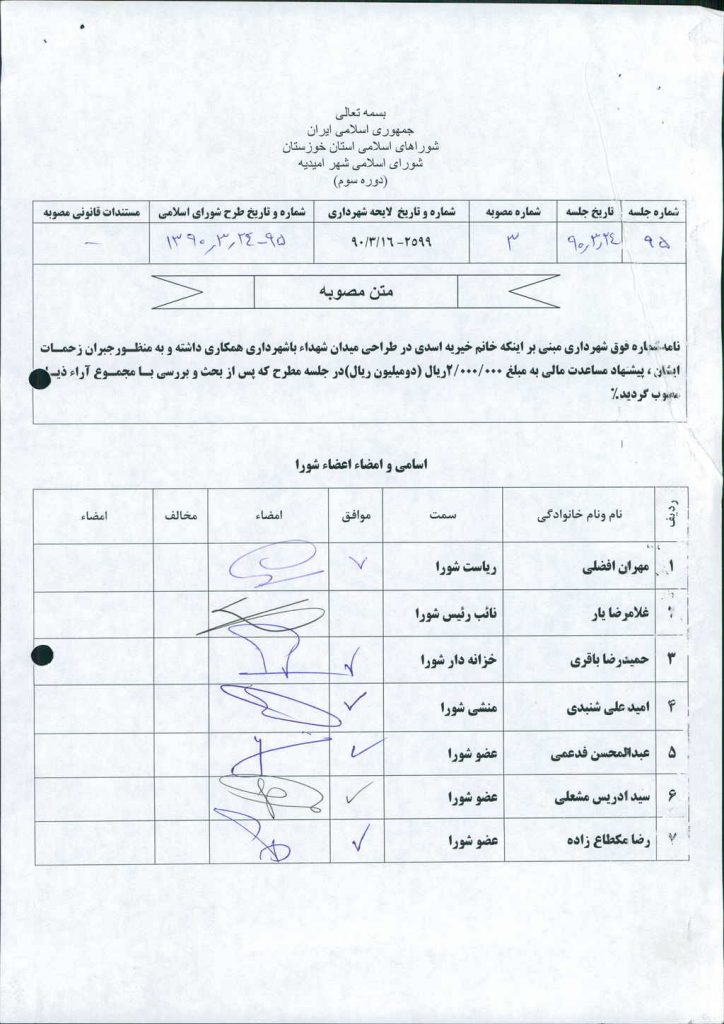 بسمه تعالی
جمهوری اسلامی ایران
شوراهای اسلامی استان خوزستان
شورای اسلامی شهر امیدیه
(دوره سوم)
شماره جلسه تاریخ جلسه شماره مصوبه شماره و تاریخ لایحه شهرداری شماره و تاریخ طرح شورای اسلامی مستندات قانونی مصوبه
۹۵ ۹۰٫۳٫۲۴ ۳ ۲۵۹۹-۹۰/۳/۱۶ ۹۵-۱۳۹۰٫۳٫۲۴ -
متن مصوبه
نامه شماره فوق شهرداری مبنی بر اینکه خانم خیریه اسدی در طراحی میدان شهداء باشهرداری همکاری داشته و به منظورجبران زحمات
ایشان ، پیشنهاد مساعدت مالی به مبلغ ۲/۰۰۰/۰۰۰ریال (دومیلیون ریال)در جلسه مطرح که پس از بحث و بررسی با مجموع آراء
مصوب گردید٪
اسامی و امضاء اعضاء شورا
ردیف نام ونام خانوادگی سمت موافق امضاء مخالف امضاء
۱ مهران افضلی ریاست شورا
غلامرضا یار نائب رئیس شورا
۳ حمیدرضا باقری خزانه دار شورا
۴ امید علی شنبدی منشی شورا
۵ عبدالمحسن فدعمی عضو شورا
۶ سید ادریس مشعلی عضو شورا
۷ رضا مکطاع زاده عضو شورا